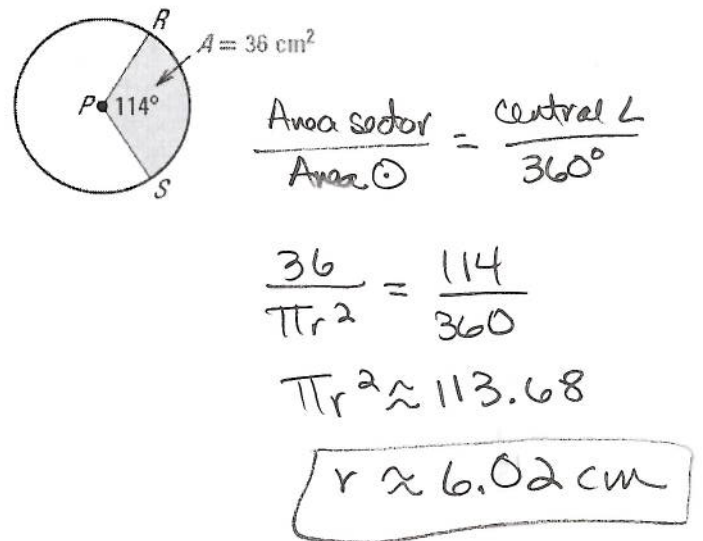 R
A = 36 cm²
P 114°
S
Area sector / Area ⊙ = central ∠ / 360°
36 / πr² = 114 / 360
πr² ≈ 113.68
r ≈ 6.02 cm